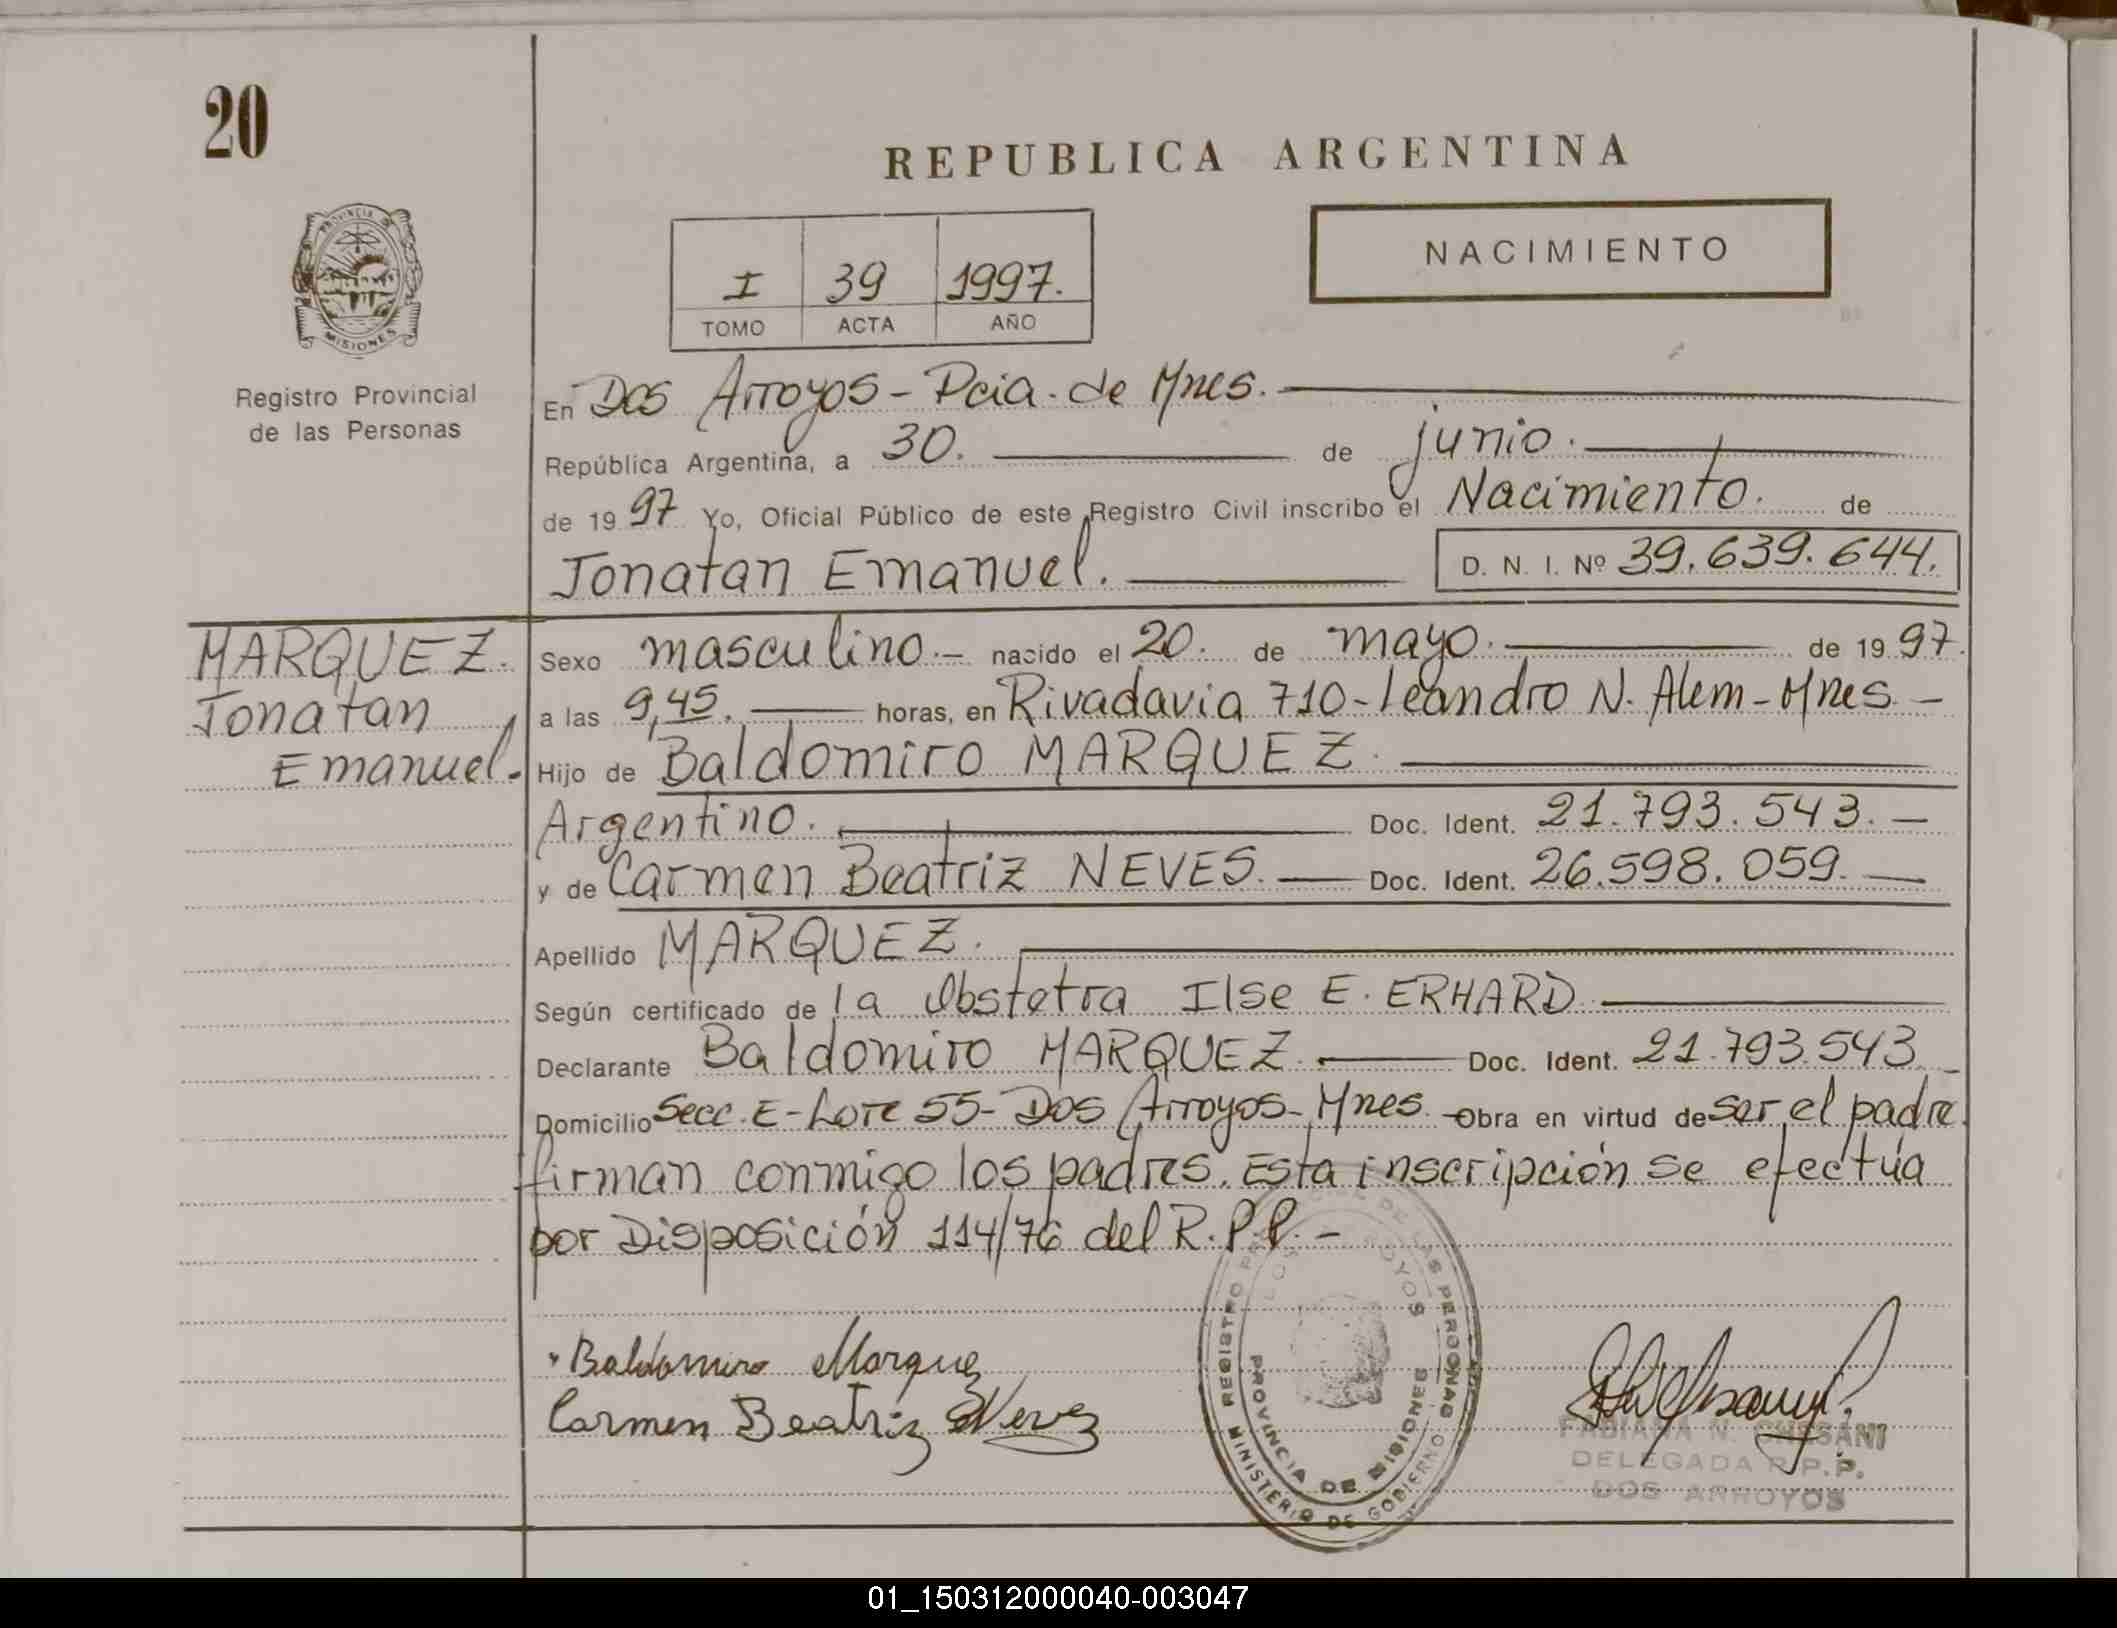 20
REPUBLICA ARGENTINA
NACIMIENTO
I 39 1997.
TOMO ACTA AÑO
PROVINCIA DE
MISIONES
Registro Provincial
de las Personas
En Dos Arroyos - Pcia. de Mnes.
República Argentina, a 30. de junio.
de 19 97 Yo, Oficial Público de este Registro Civil inscribo el Nacimiento. de
Jonatan Emanuel. D. N. I. Nº 39.639.644.
MARQUEZ.
Jonatan
Emanuel.
Sexo masculino.- nacido el 20. de mayo. de 19 97.
a las 9,45. horas, en Rivadavia 710-Leandro N. Alem-Mnes.-
Hijo de Baldomiro MARQUEZ.
Argentino. Doc. Ident. 21.793.543.-
y de Carmen Beatriz NEVES. Doc. Ident. 26.598.059.
Apellido MARQUEZ.
Según certificado de la Obstetra Ilse E. ERHARD
Declarante Baldomiro MARQUEZ. Doc. Ident. 21.793.543
Domicilio Secc. E-Lote 55-Dos Arroyos-Mnes. Obra en virtud de ser el padre.
firman conmigo los padres. Esta inscripción se efectúa
por Disposición 114/76 del R.P.P.-
Baldomiro Marquez
Carmen Beatriz Neves
REGISTRO DE LAS PERSONAS
DOS ARROYOS
PROVINCIA DE MISIONES
MINISTERIO DE GOBIERNO
FABIANA N. CHESANI
DELEGADA R.P.P.
DOS ARROYOS
01_150312000040-003047